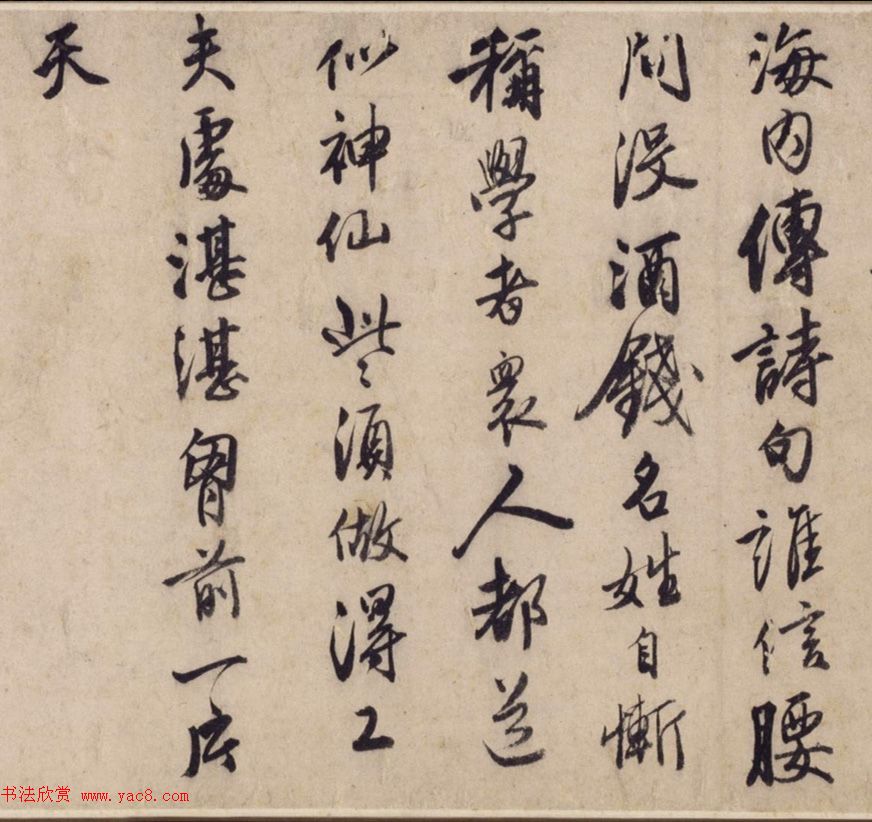 海内傳詩句誰信腰
間没酒錢名姓自慚
稱學者衆人都道
似神仙些々須做得工
夫處湛湛胷前一片
天
书法欣赏 www.yac8.com